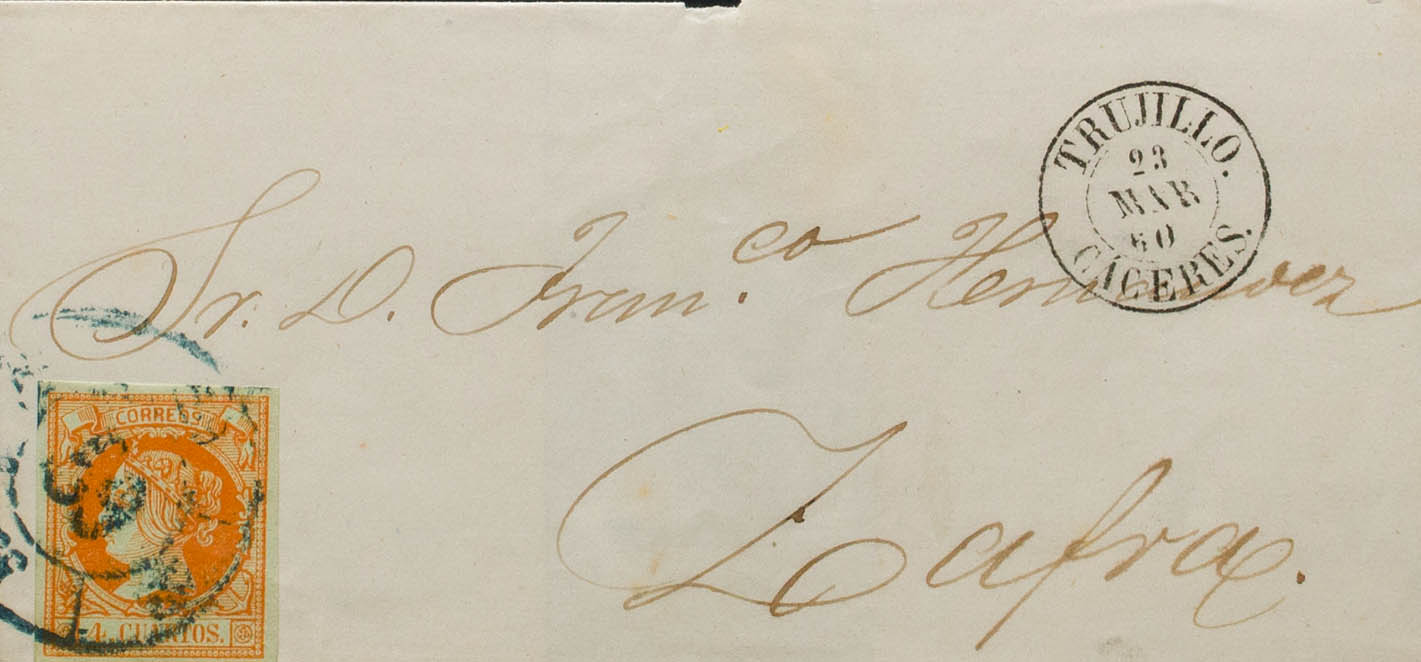 TRUJILLO.
23
MAR
60
CÁCERES.
Sr. D. Fran.co Hernandez
Zafra.
CORREOS
4 CUARTOS.